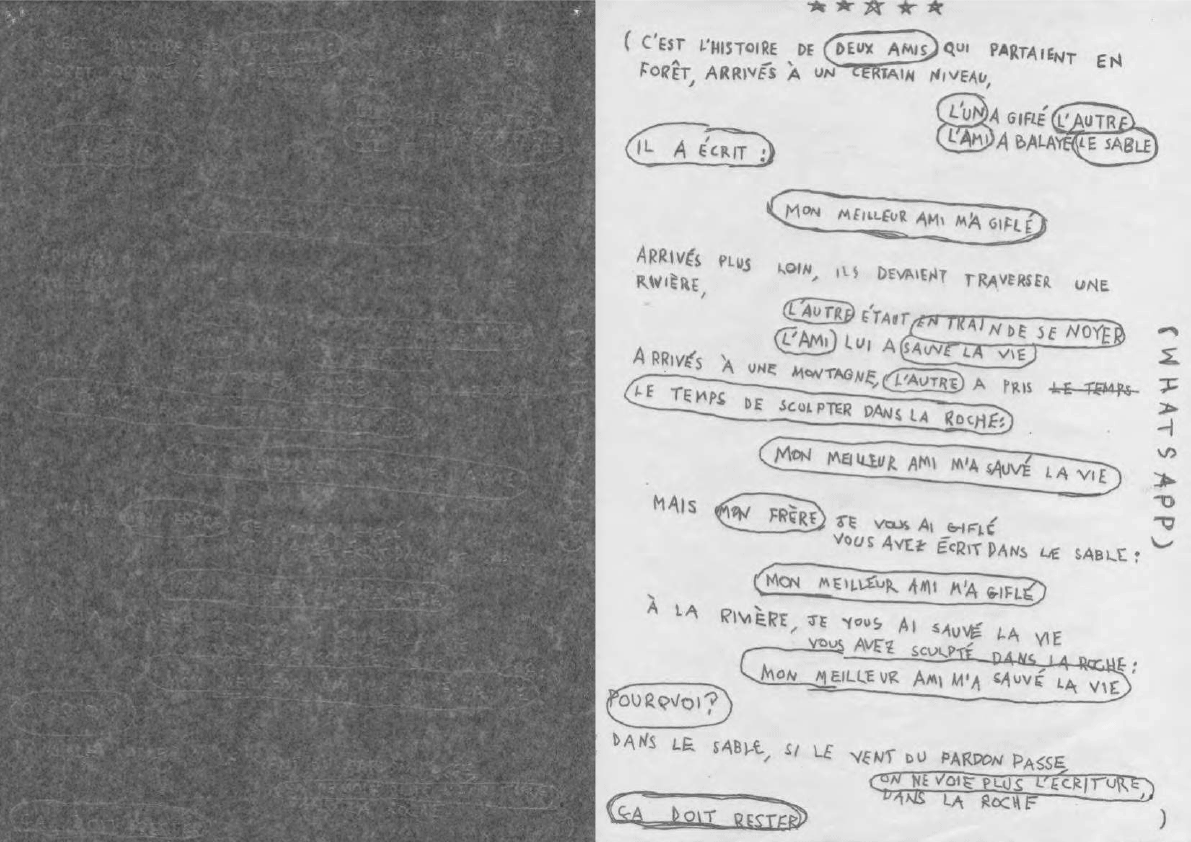 ( C'EST L'HISTOIRE DE DEUX AMIS QUI PARTAIENT EN
FORÊT, ARRIVÉS À UN CERTAIN NIVEAU,
L'UN A GIFLÉ L'AUTRE
L'AMI A BALAYÉ LE SABLE
IL A ÉCRIT :
MON MEILLEUR AMI M'A GIFLÉ
ARRIVÉS PLUS LOIN, ILS DEVAIENT TRAVERSER UNE
RIVIÈRE,
L'AUTRE ÉTAIT EN TRAIN DE SE NOYER
L'AMI LUI A SAUVÉ LA VIE
ARRIVÉS À UNE MONTAGNE, L'AUTRE A PRIS LE TEMPS
LE TEMPS DE SCULPTER DANS LA ROCHE:
MON MEILLEUR AMI M'A SAUVÉ LA VIE
MAIS MON FRÈRE JE VOUS AI GIFLÉ
VOUS AVEZ ÉCRIT DANS LE SABLE :
MON MEILLEUR AMI M'A GIFLÉ
À LA RIVIÈRE, JE VOUS AI SAUVÉ LA VIE
VOUS AVEZ SCULPTÉ DANS LA ROCHE :
MON MEILLEUR AMI M'A SAUVÉ LA VIE
POURQUOI?
DANS LE SABLE, SI LE VENT DU PARDON PASSE
ON NE VOIE PLUS L'ÉCRITURE,
DANS LA ROCHE
ÇA DOIT RESTER )
(WHATSAPP)